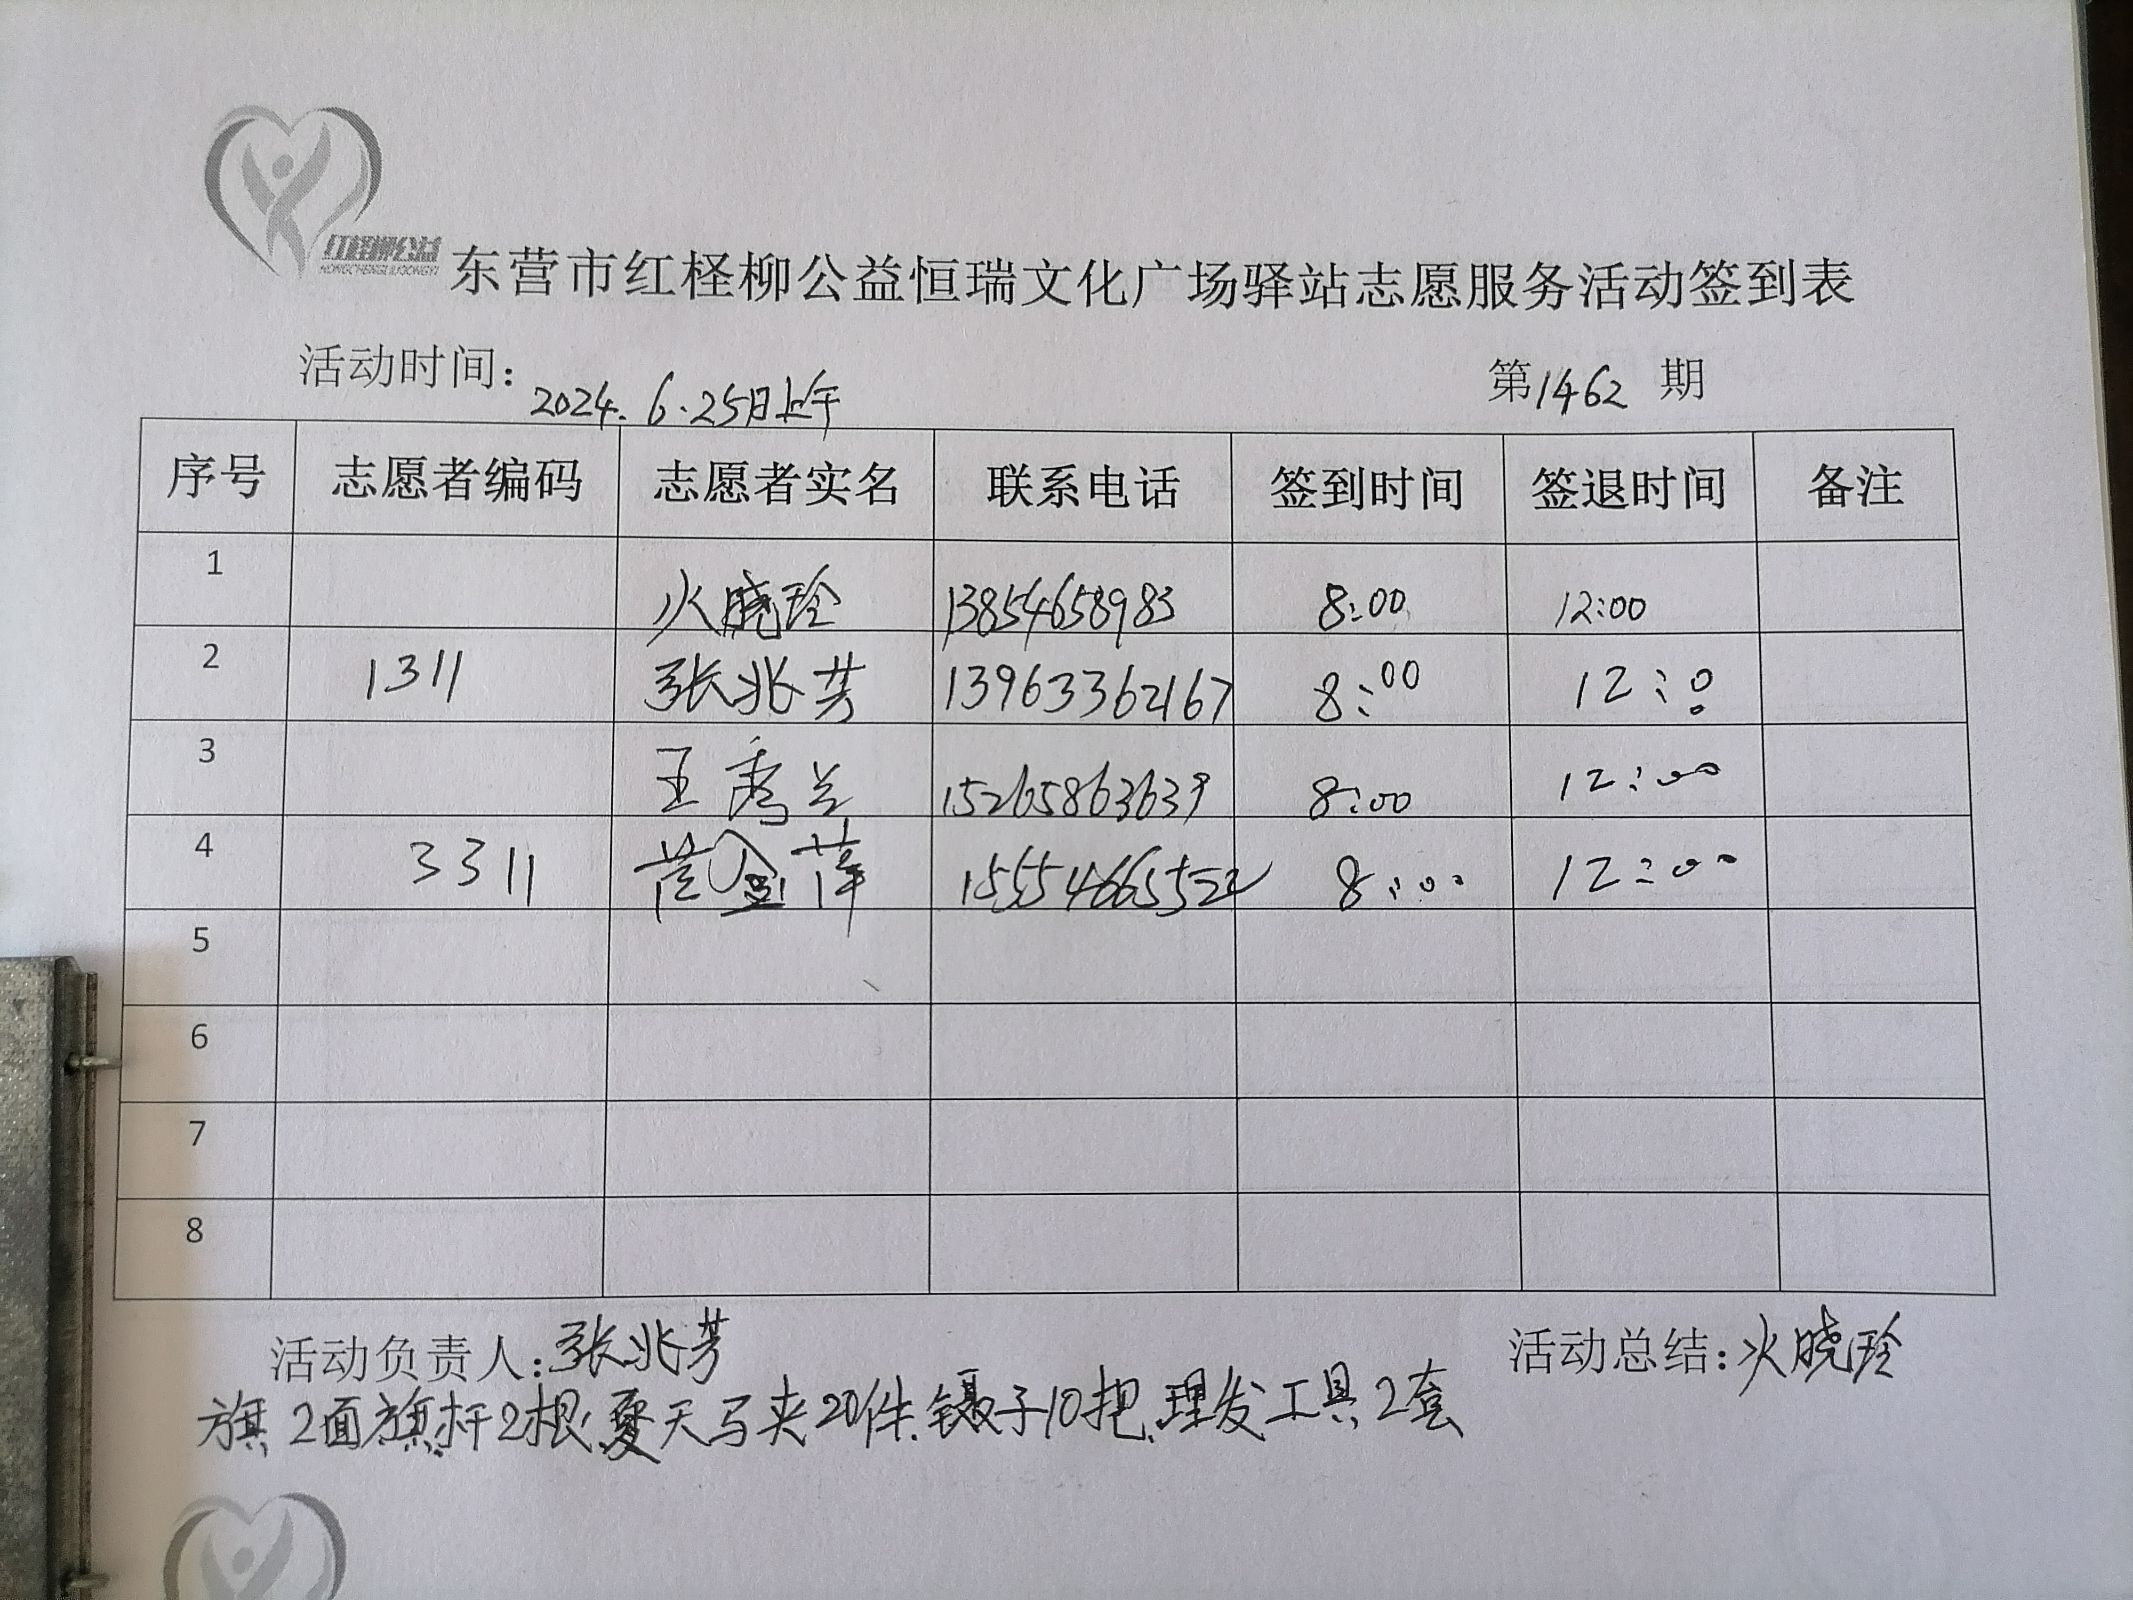 红柽柳公益
HONGCHENGLIUGONGYI
东营市红柽柳公益恒瑞文化广场驿站志愿服务活动签到表
活动时间：2024.6.25日上午 第1462期
序号 志愿者编码 志愿者实名 联系电话 签到时间 签退时间 备注
1 火晓玲 13854658983 8:00 12:00
2 1311 张兆芳 13963362167 8:00 12:00
3 王秀兰 15265863639 8:00 12:00
4 3311 15554665522 8:00 12:00
5
6
7
8
活动负责人：张兆芳 活动总结：火晓玲
旗2面旗杆2根、夏天马夹20件、镊子10把、理发工具2套